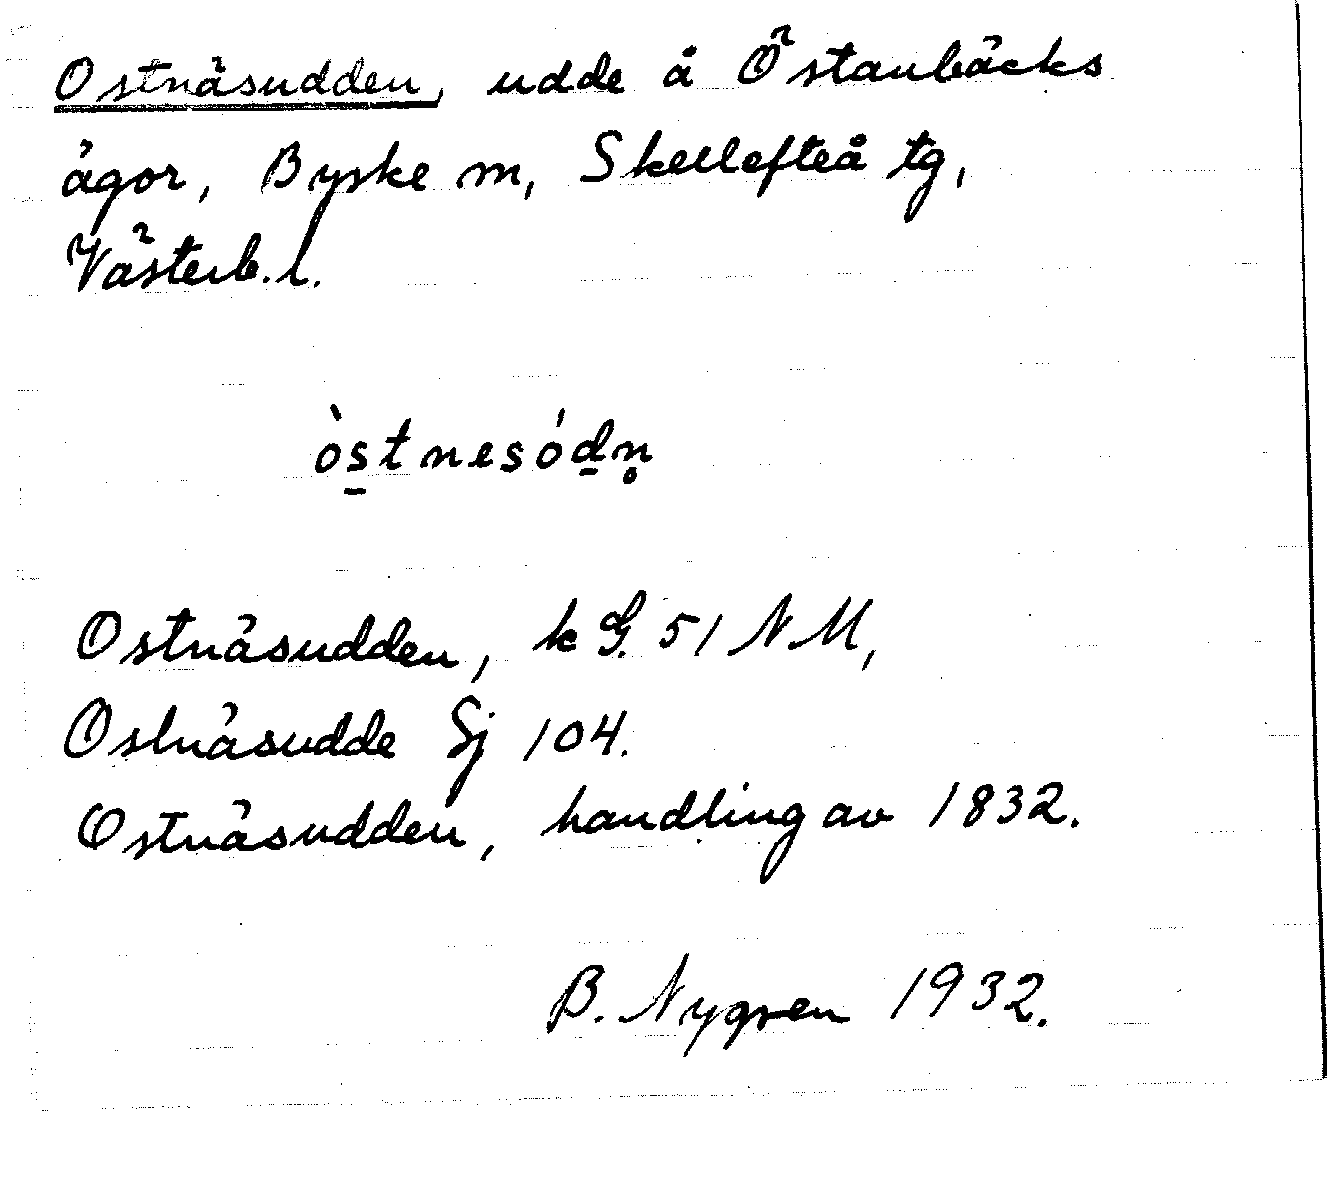 Ostnäsudden, udde å Östanbäcks
ägor, Byske m, Skellefteå tg,
Västerb. l.
òs̠tnesód̠n̥
Ostnäsudden, k G. 51 N M,
Ostnäsudde Sj 104.
Ostnäsudden, handling av 1832.
B. Nygren 1932.